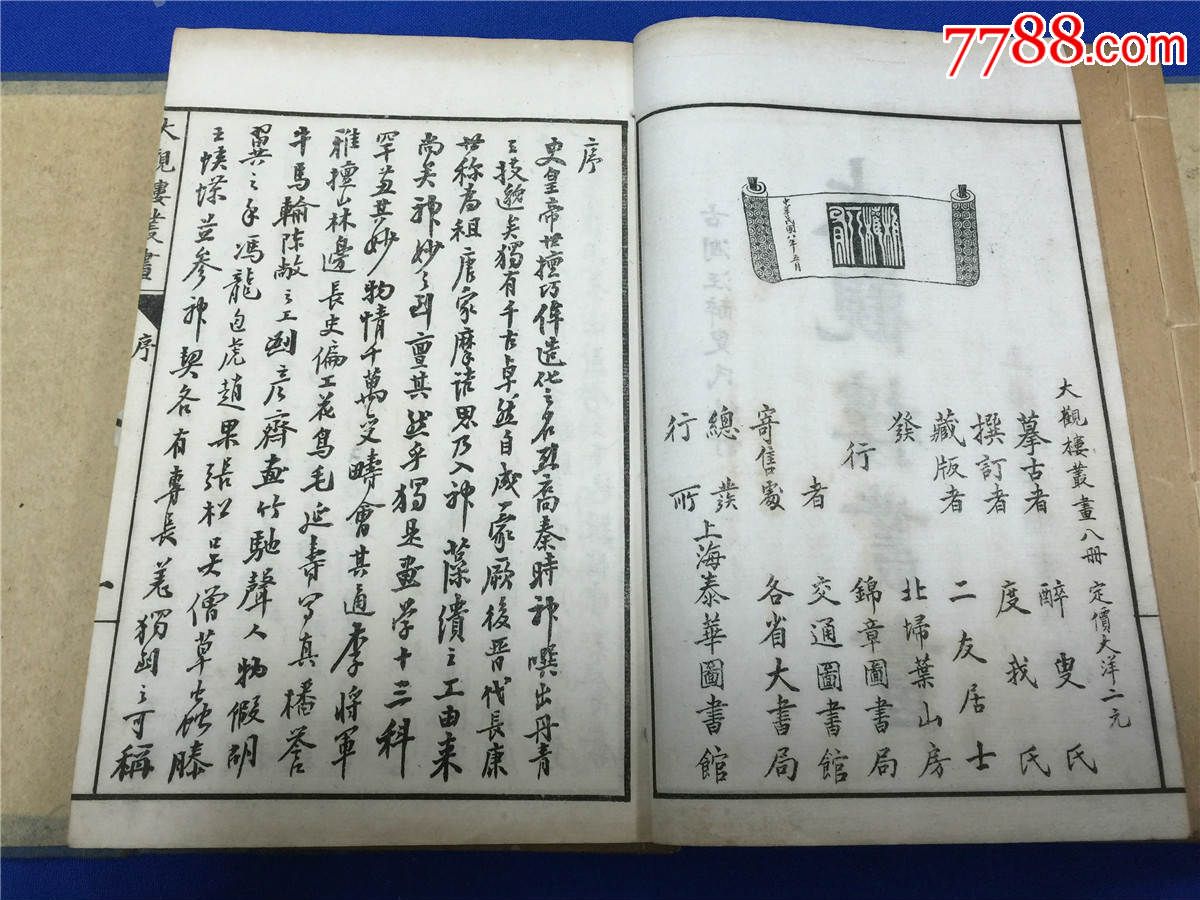 7788.com
中華民國八年五月
大觀樓叢畫八冊 定價大洋二元
摹古者 醉叟氏
撰訂者 度我氏
藏版者 二友居士
發行者 北埽葉山房
錦章圖書局
交通圖書館
寄售處 各省大書局
總發行所 上海泰華圖書館
序
史皇帝世擅巧侔造化之名烈裔秦時神噀出丹青
之技邈矣獨有千古卓然自成一家厥後晋代長康
世称為祖唐家摩詰思乃入神藻繢之工由来
尚矣神妙之圖亶其然乎獨是畫学十三科
罕盡其妙物情千萬变疇會其通李將軍
雅擅山林邊長史偏工花鳥毛延壽写真播譽
牛馬輪陳敞之工圖彥齊画竹馳聲人物假胡
翼之手馮龍包虎趙果張松吴僧草虫滕
王蛱蝶並参神契各有專長羌獨圖之可稱
大觀樓叢畫
序
一